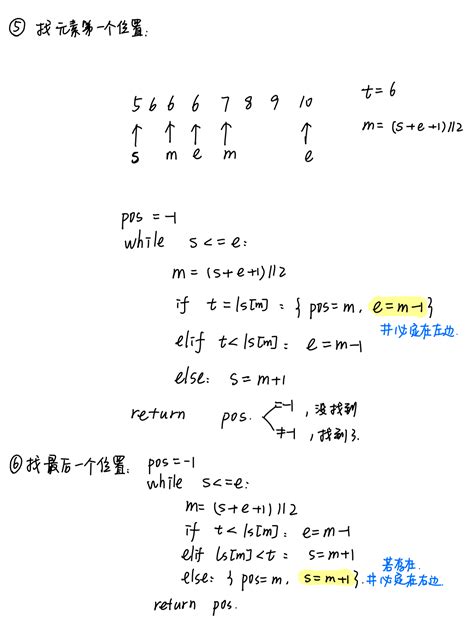 ⑤ 找元素第一个位置:
t=6
5 6 6 6 7 8 9 10
m=(s+e+1)//2
↑ ↑ ↑ ↑ ↑
s m e m e
pos=-1
while s<=e:
m=(s+e+1)//2
if t=ls[m]:{pos=m, e=m-1}
#必定在左边.
elif t<ls[m]: e=m-1
else: s=m+1
return pos. =-1, 没找到
≠-1, 找到了.
⑥ 找最后一个位置: pos=-1
while s<=e:
m=(s+e+1)//2
if t<ls[m]: e=m-1
elif ls[m]<t: s=m+1
若存在.
else:{pos=m, s=m+1}. #必定在右边.
return pos.